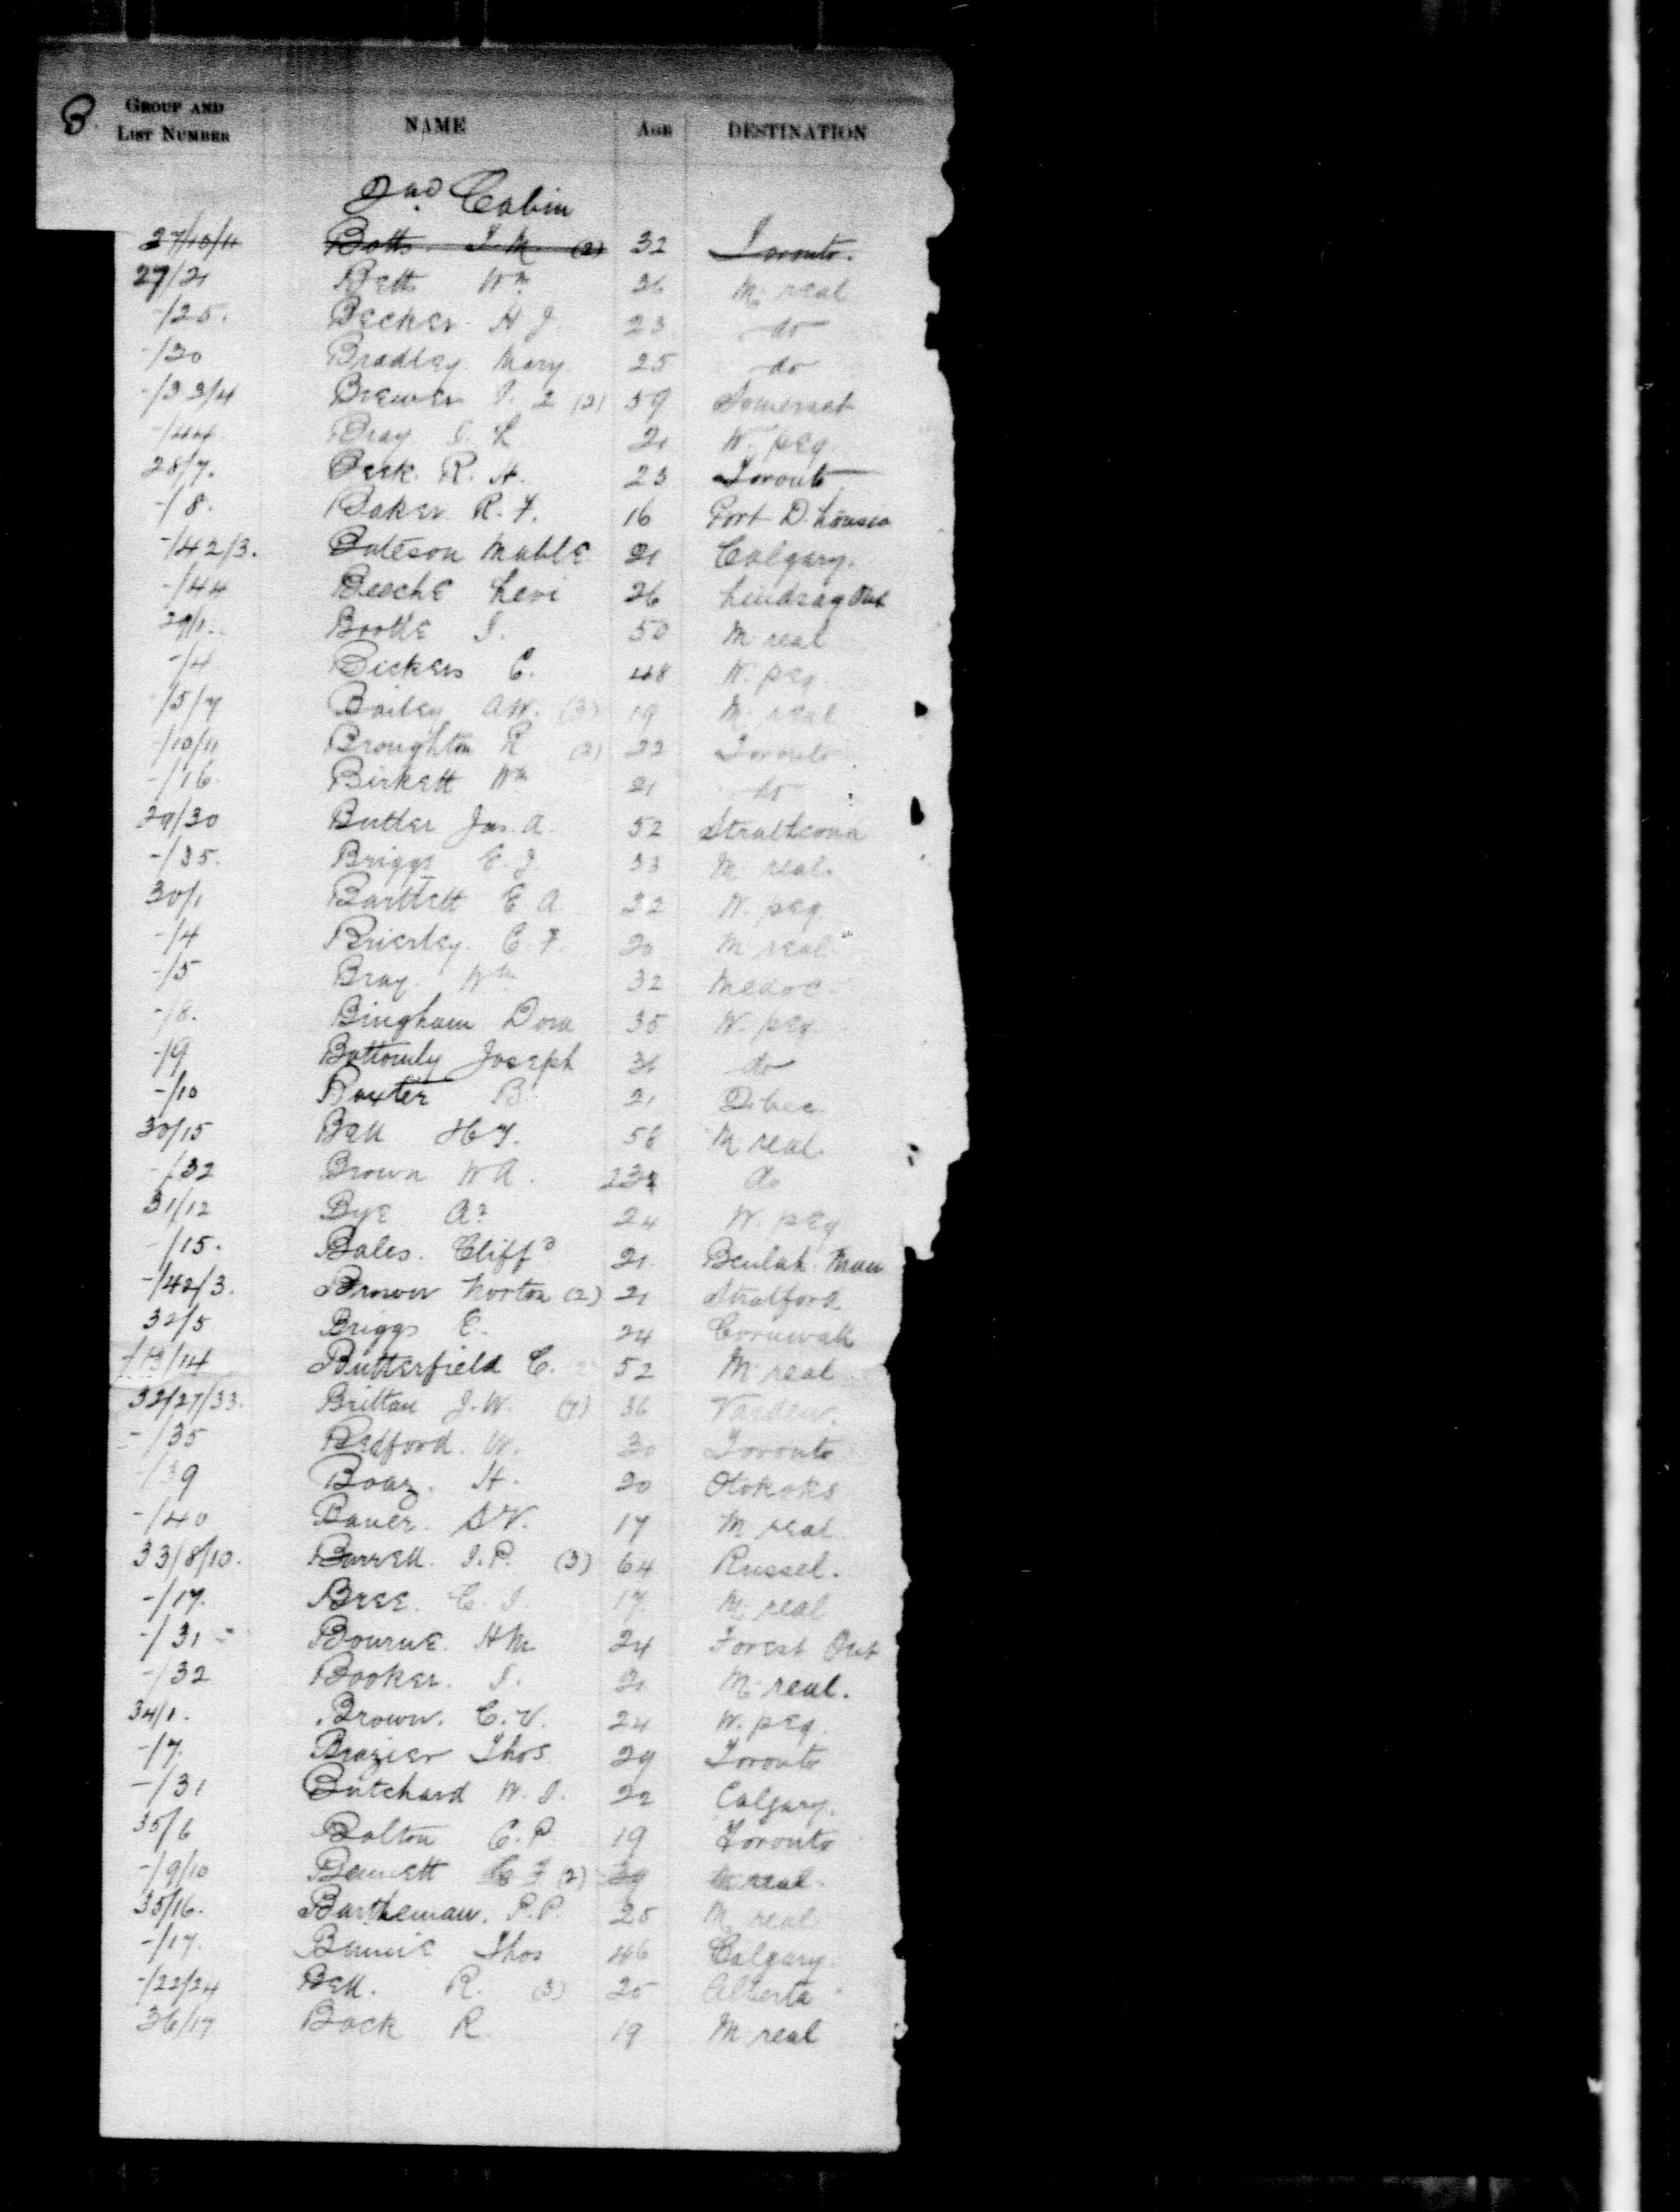 B.
GROUP AND LIST NUMBER NAME AGE DESTINATION
2nd Cabin
27/10/11 Botts. T. M. (2) 32 Toronto.
27/21 Bett Wm 26 M. real
-/25. Becker H J. 23 do
-/30 Bradley Mary 25 do
-/33/4 Brewer (2) 59 Somerset
-/44 Bray 21 W. peg
28/7. Beck. R. H. 23 Toronto
-/8. Baker R. F. 16 Port D. housie
-/42/3. Bateson Mable 21 Calgary.
-/44 Beeche Levi 26 Lindsay Ont
29/1. Boothe J. 50 M. real
-/4 Bickers C. 48 W. peg.
-/5/7 Bailey A.W. (3) 19 M. real
-/10/11 Broughton R (2) 22 Toronto
-/16. Birkett Wm 21 do
29/30 Butler Jas. A. 52 Strathcona
-/35. Briggs E. J. 33 M. real.
30/1 Bartlett E A 22 W. peg
-/4 Brierley. C. F. 20 M. real
-/5 Bray. Wm 32 Medoc.
-/8. Bingham Dora 35 W. peg
-/9 Bottomly Joseph 31 do
-/10 Baxter B. 21 Q. bec
30/15 Bell Hy. 58 M. real.
-/32 Brown W A. 23 do
31/12 Bye Ar 24 W. peg
-/15. Bales. Cliffd 21. Beulah Man
-/42/3. Brower Norton (2) 21 Stratford
32/5 Briggs E. 24 Cornwall
-/13/14 Butterfield C. 52 M. real
32/27/33. Britton J. W. (7) 36 Varden.
-/35 Bedford. W. 30 Toronto
-/39 Boaz. H. 20 Otokoks
-/40 Bauer. S V. 17 M. real
33/8/10. Burrell. J. P. (3) 64 Russel.
-/17. Bree. C. J. 17 M. real
-/31 Bourne. H M 24 Forest Ont
-/32 Booker. J. 21 M. real.
34/1. Brown. C. V. 24 W. peg.
-/7. Brazier Thos 29 Toronto
-/31 Butchard W. J. 22 Calgary.
35/6 Bolton C. P. 19 Toronto
-/9/10 Bennett (2) 29 M. real.
35/16. Bartheman. P. P. 25 M. real
-/17. Bennie Thos 46 Calgary
-/22/24 Bell. R. (3) 25 Alberta
36/17 Bock R. 19 M. real